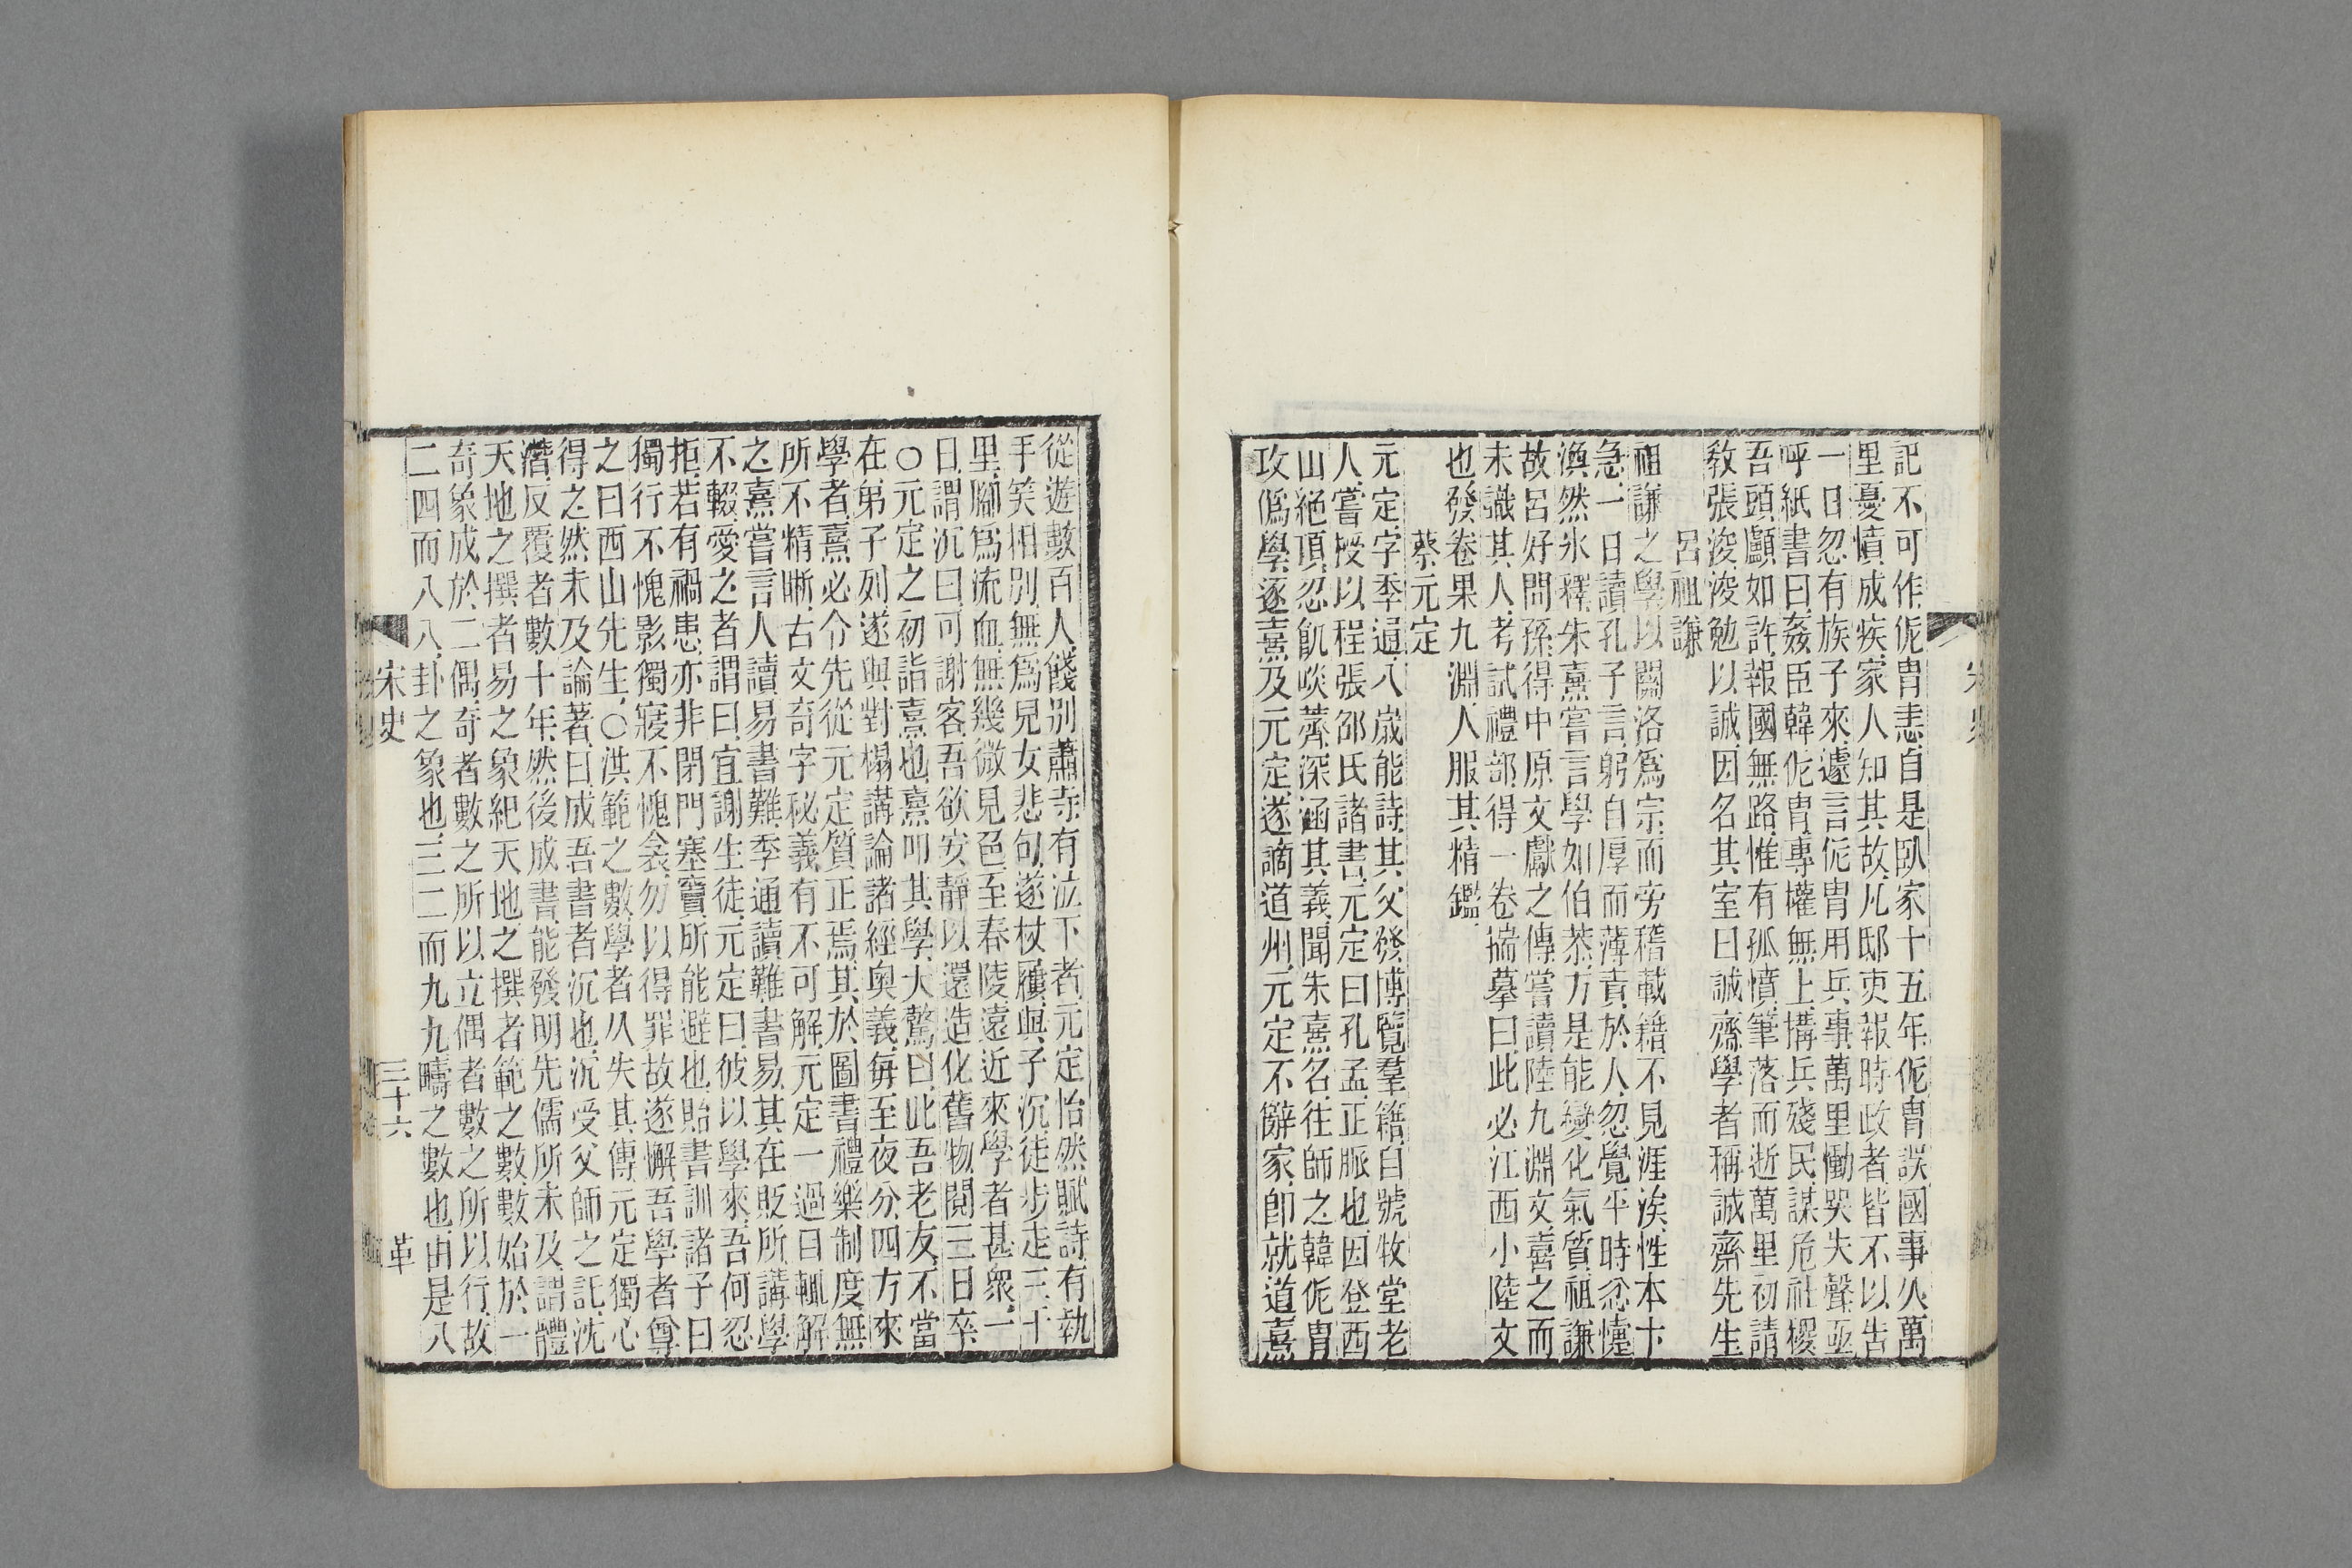 記不可作侂冑恚自是臥家十五年侂冑誤國事久萬
里憂憤成疾家人知其故凡邸吏報時政者皆不以告
一日忽有族子來遽言侂冑用兵事萬里慟哭失聲亟
呼紙書曰姦臣韓侂冑專權無上搆兵殘民謀危社稷
吾頭顱如許報國無路惟有孤憤筆落而逝萬里初請
敎張浚浚勉以誠因名其室曰誠齋學者稱誠齋先生
呂祖謙
祖謙之學以關洛爲宗而旁稽載籍不見涯涘性本卞
急一日讀孔子言躬自厚而薄責於人忽覺平時忿懥
渙然氷釋朱熹嘗言學如伯恭方是能變化氣質祖謙
故呂好問孫得中原文獻之傳嘗讀陸九淵文喜之而
未識其人考試禮部得一卷揣摹曰此必江西小陸文
也發卷果九淵人服其精鑑
蔡元定
元定字季通八歲能詩其父發博覽羣籍自號牧堂老
人嘗授以程張邵氏諸書元定曰孔孟正脈也因登西
山絕頂忍飢啖薺深涵其義聞朱熹名往師之韓侂冑
攻僞學逐熹及元定遂謫道州元定不辭家卽就道熹
從遊數百人餞別蕭寺有泣下者元定怡然賦詩有執
手笑相別無爲兒女悲句遂杖屨與子沉徒步走三千
里腳爲流血無幾微見色至舂陵遠近來學者甚衆一
日謂沉曰可謝客吾欲安靜以還造化舊物閱三日卒
〇元定之初詣熹也熹叩其學大驚曰此吾老友不當
在弟子列遂與對榻講論諸經奧義每至夜分四方來
學者熹必令先從元定質正焉其於圖書禮樂制度無
所不精晰古文奇字秘義有不可解元定一過目輒解
之熹嘗言人讀易書難季通讀難書易其在貶所講學
不輟愛之者謂曰宜謝生徒元定曰彼以學來吾何忍
拒若有禍患亦非閉門塞竇所能避也貽書訓諸子曰
獨行不愧影獨寢不愧衾勿以得罪故遂懈吾學者尊
之曰西山先生〇洪範之數學者久失其傳元定獨心
得之然未及論著曰成吾書者沉也沉受父師之託沈
潛反覆者數十年然後成書能發明先儒所未及謂體
天地之撰者易之象紀天地之撰者範之數數始於一
奇象成於二偶奇者數之所以立偶者數之所以行故
二四而八八卦之象也三三而九九疇之數也由是八
宋史
三十六
革